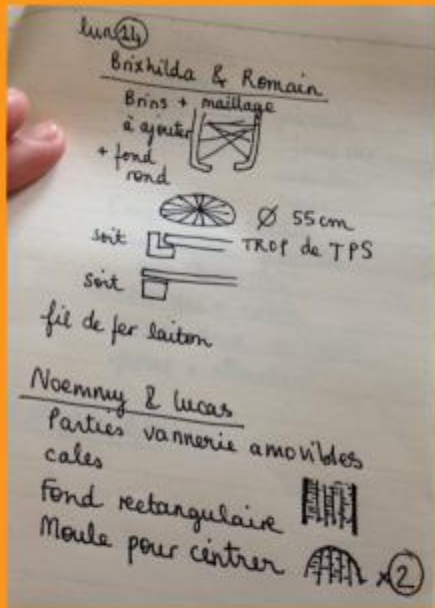 lun 14
Brixhilda & Romain
Brins + maillage
à ajouter
+ fond
rond
Ø 55cm
soit TROP de TPS
soit
fil de fer laiton
Noemny & Lucas
Parties vannerie amovibles
cales
Fond rectangulaire
Moule pour cintrer x2